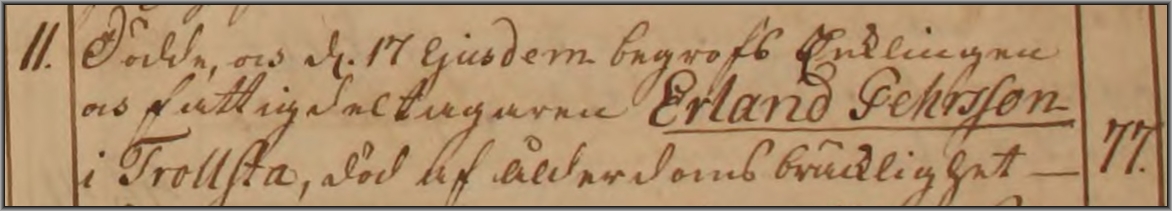 11. Dödde, os d. 17 Ejusdem begrofs Enklingen
os fattigdeltagaren Erland Pehrsson
i Trollsta, död af ålderdoms bräcklighet — 77.